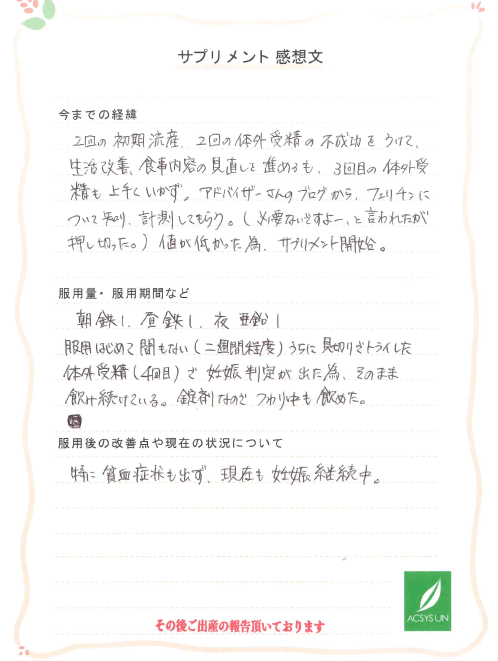 サプリメント 感想文
今までの経緯
2回の初期流産、2回の体外受精の不成功をうけて、
生活改善、食事内容の見直しを進めるも、3回目の体外受
精も上手くいかず。アドバイザーさんのブログから、フェリチンに
ついて知り、計測してもらう。(必要ないですよー、と言われたが
押し切った。)値が低かった為、サプリメント開始。
服用量・服用期間など
朝鉄1、昼鉄1、夜 亜鉛1
服用はじめて間もない(二週間程度)うちに見切りでトライした
体外受精(4回目)で妊娠判定が出た為、そのまま
飲み続けている。錠剤なので つわり中も飲めた。
服用後の改善点や現在の状況について
特に貧血症状も出ず、現在も妊娠継続中。
ACSYS UN
その後ご出産の報告頂いております